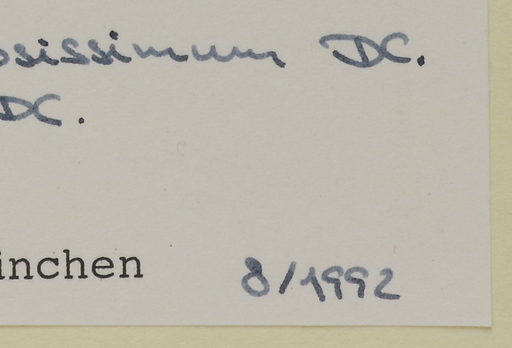 osissimum DC.
DC.
inchen 8/1992